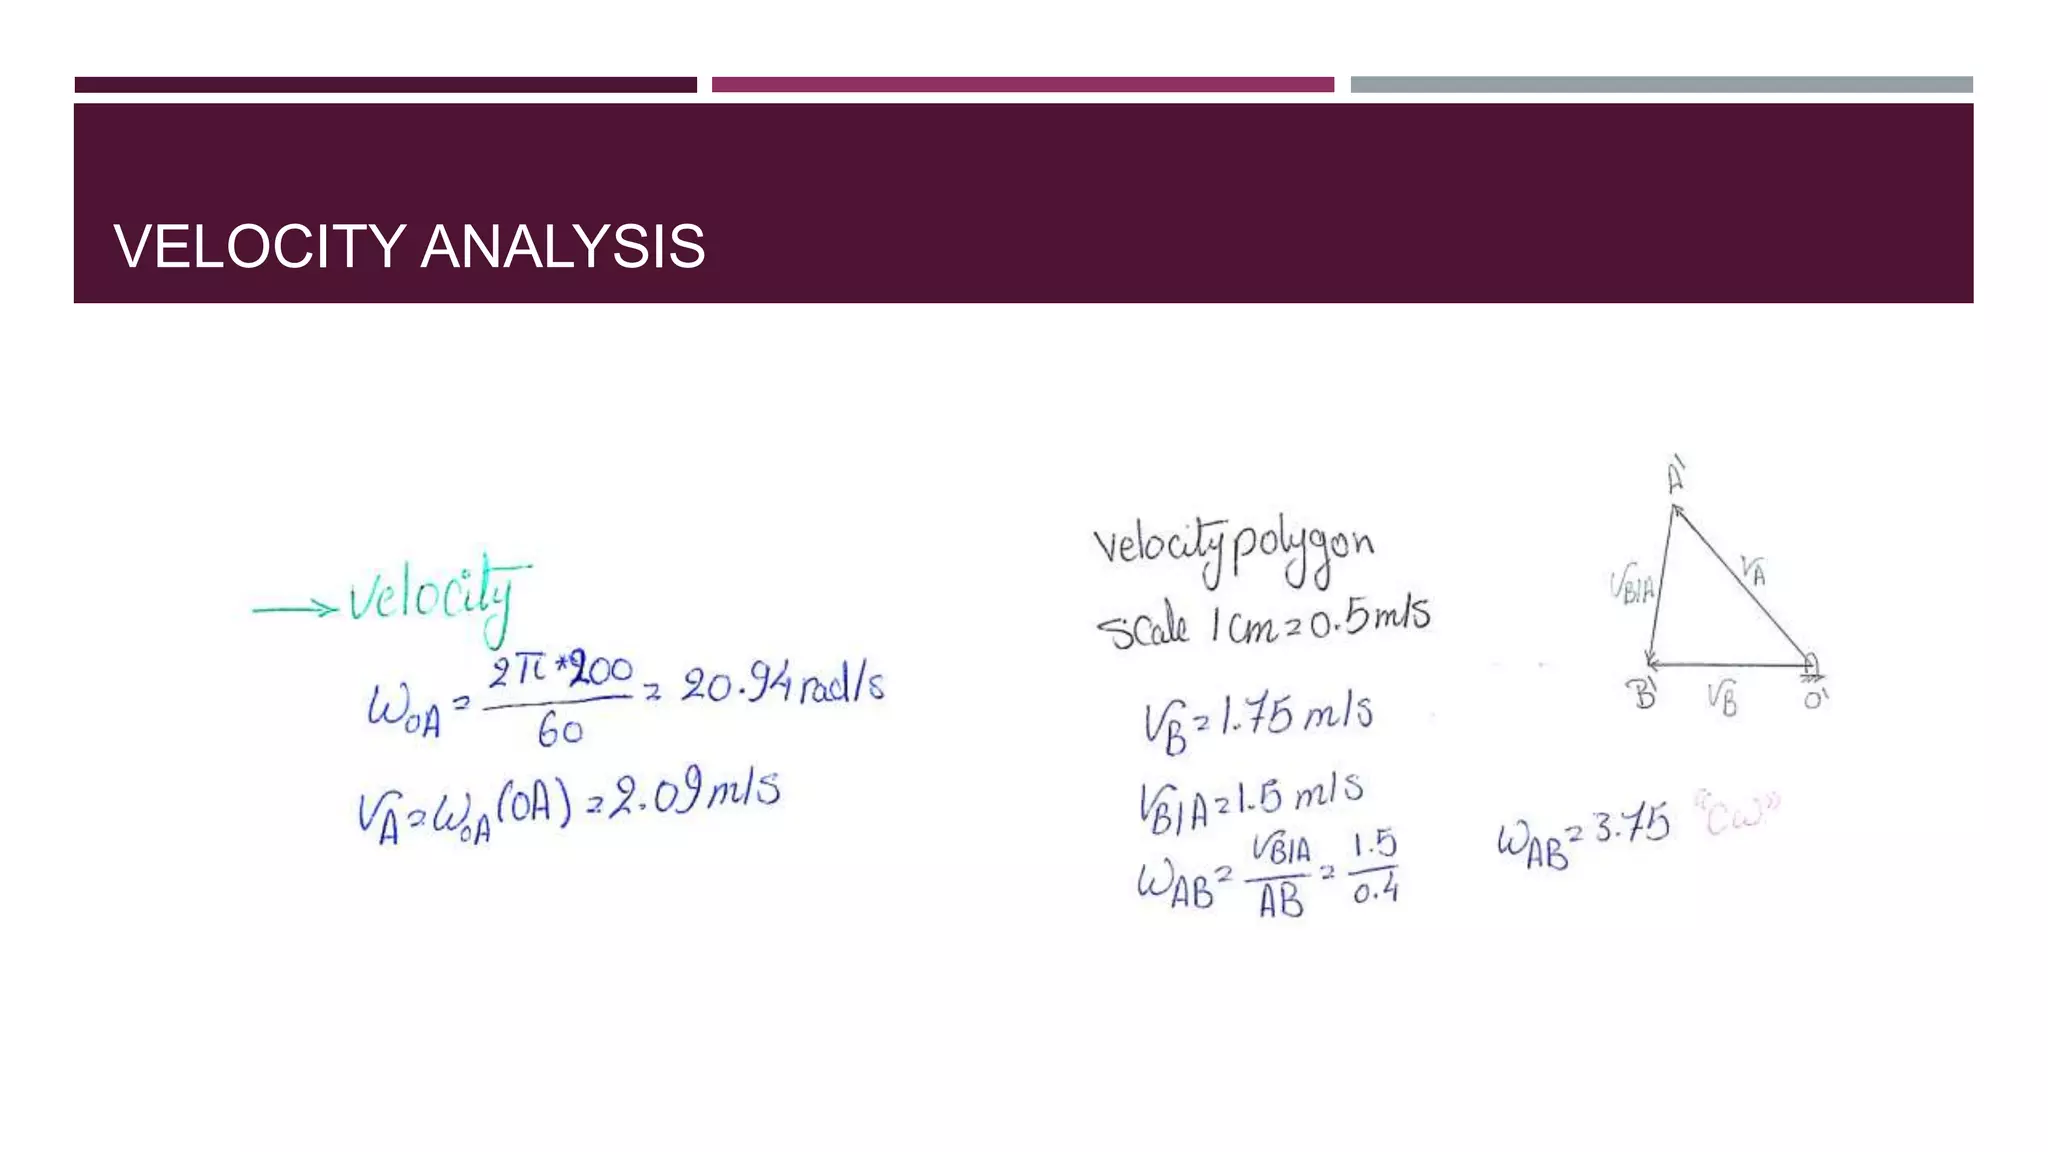 VELOCITY ANALYSIS
→ Velocity
ω_OA = 2π*200 / 60 = 20.94 rad/s
V_A = ω_OA (OA) = 2.09 m/s
Velocity polygon
Scale 1 cm = 0.5 m/s
V_B = 1.75 m/s
V_B/A = 1.5 m/s
ω_AB = V_B/A / AB = 1.5 / 0.4
ω_AB = 3.75 "CW"
A'
V_B/A
V_A
B'
V_B
O'